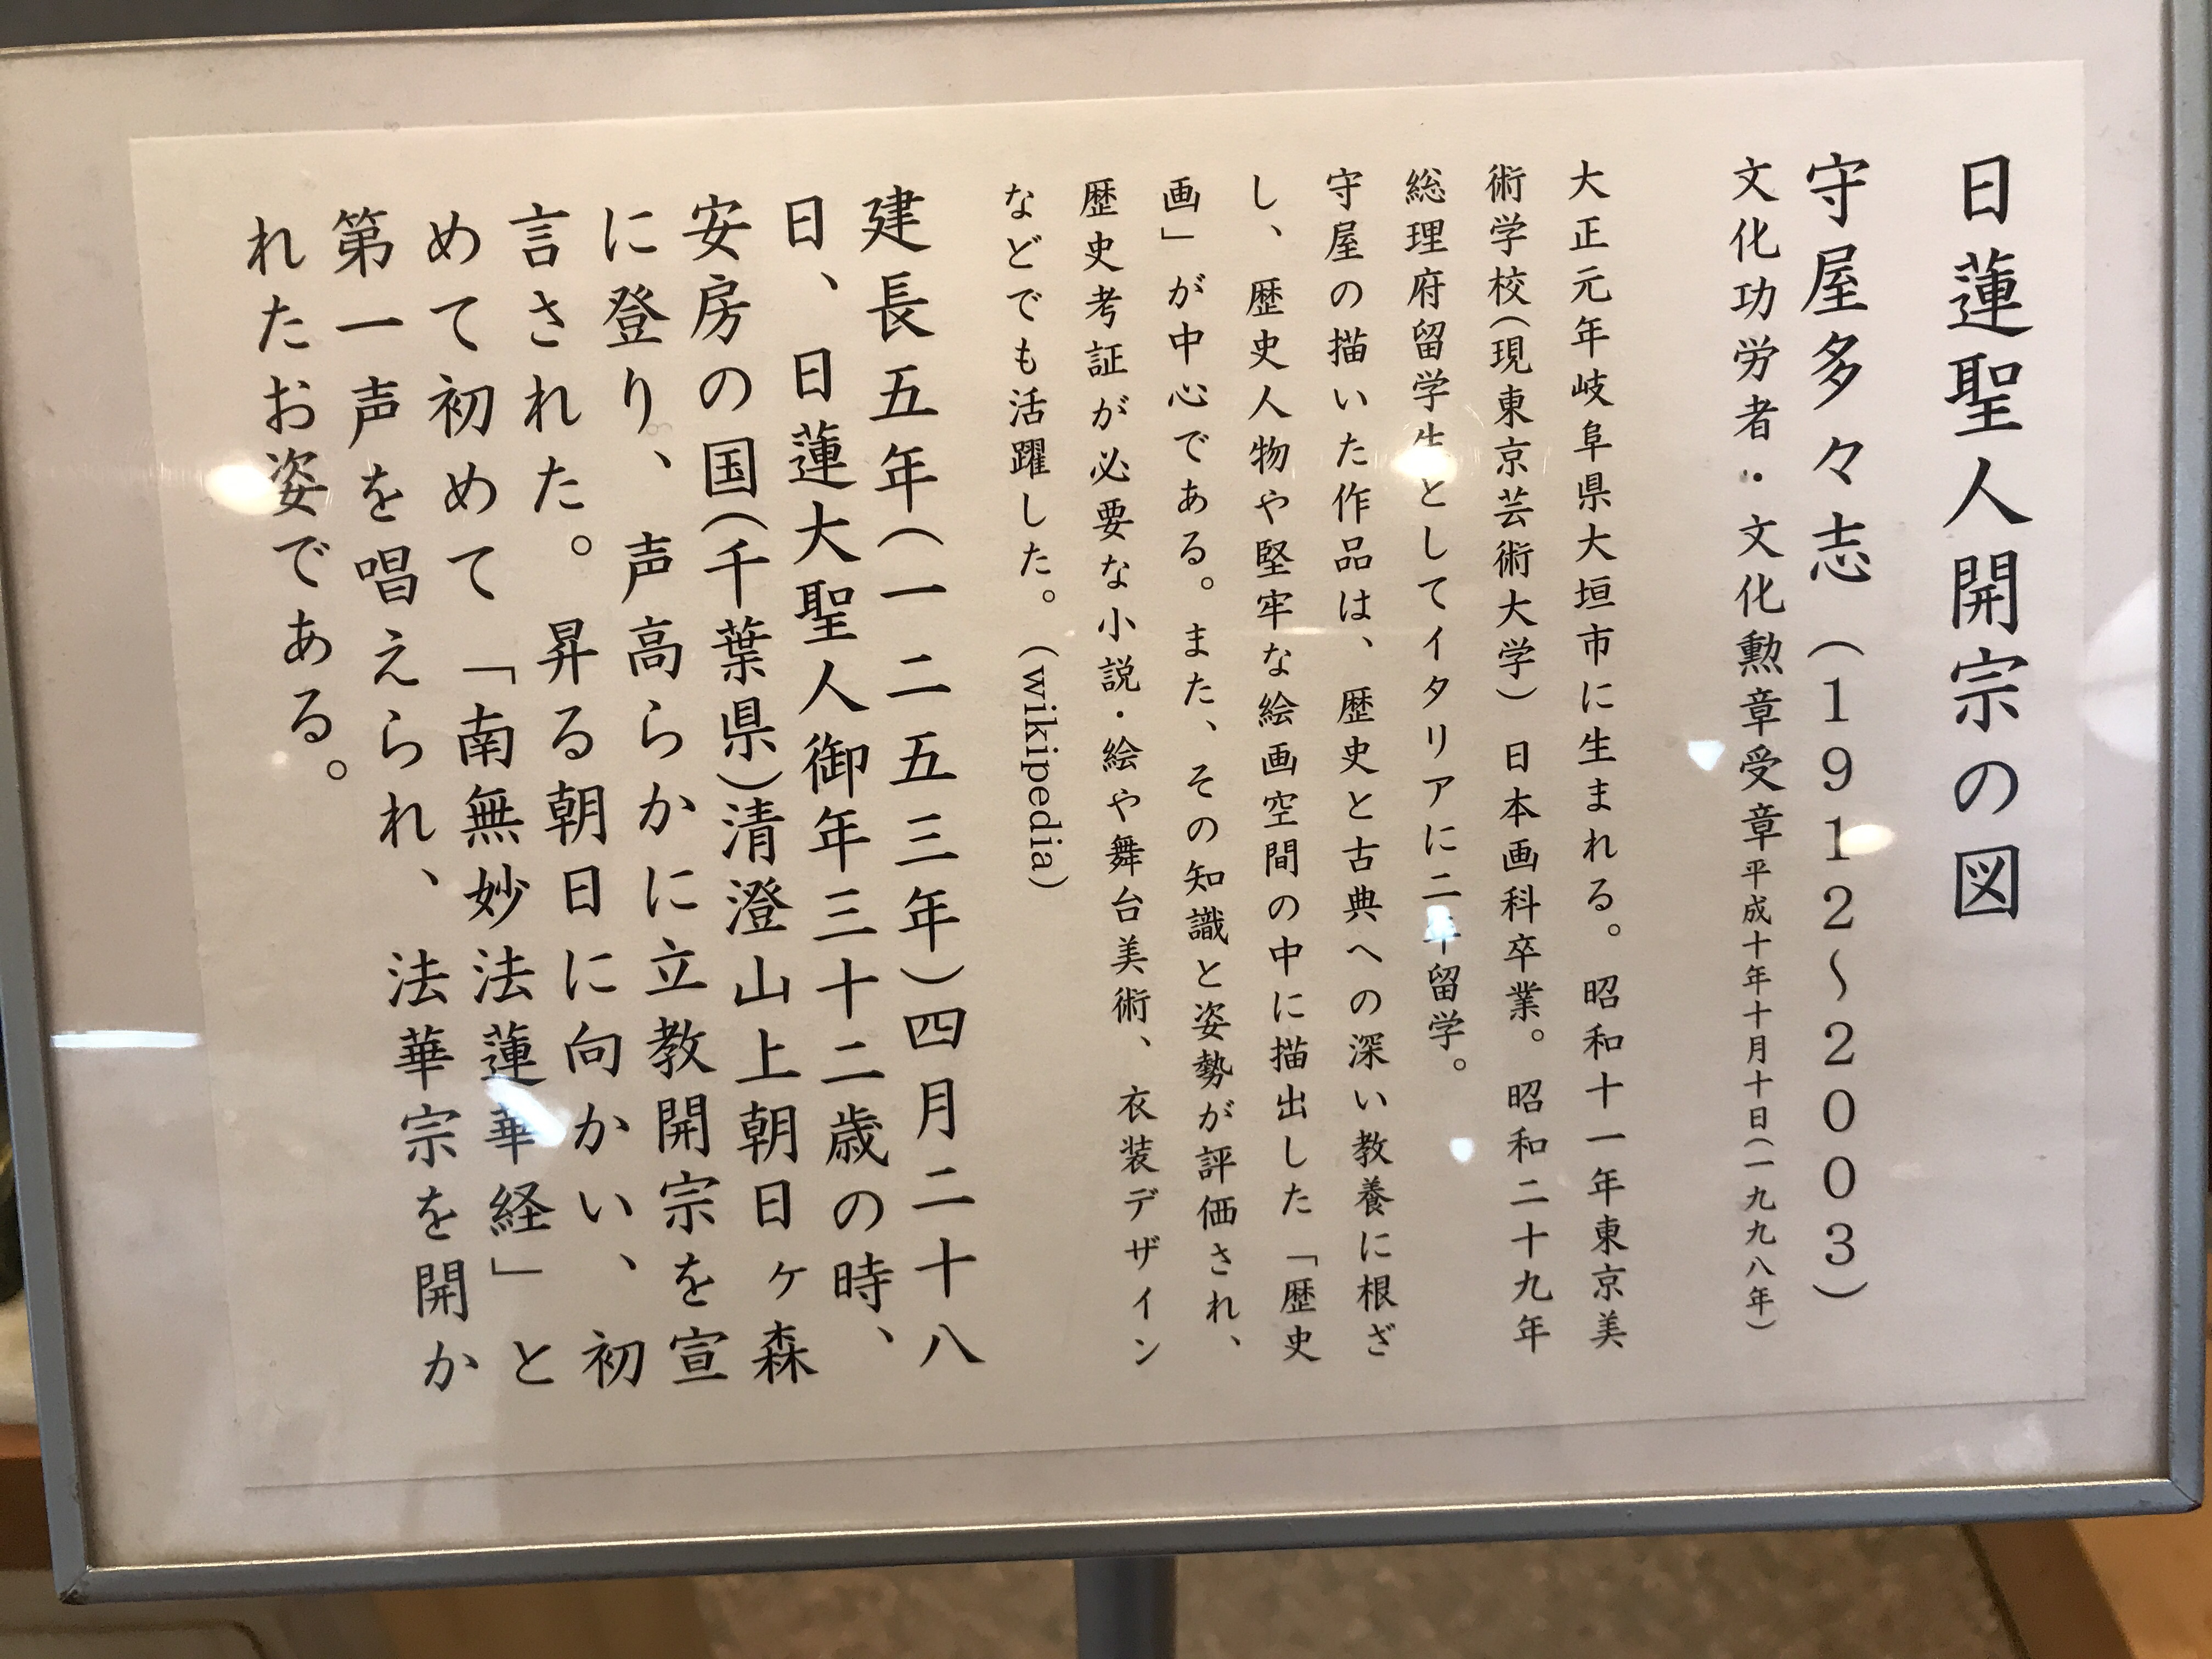 日蓮聖人開宗の図
守屋多々志（1912～2003）
文化功労者・文化勲章受章平成十年十月十日（一九九八年）
大正元年岐阜県大垣市に生まれる。昭和十一年東京美
術学校（現東京芸術大学）日本画科卒業。昭和二十九年
総理府留学生としてイタリアに二年留学。
守屋の描いた作品は、歴史と古典への深い教養に根ざ
し、歴史人物や堅牢な絵画空間の中に描出した「歴史
画」が中心である。また、その知識と姿勢が評価され、
歴史考証が必要な小説・絵や舞台美術、衣装デザイン
などでも活躍した。（wikipedia）
建長五年（一二五三年）四月二十八
日、日蓮大聖人御年三十二歳の時、
安房の国（千葉県）清澄山上朝日ヶ森
に登り、声高らかに立教開宗を宣
言された。昇る朝日に向かい、初
めて初めて「南無妙法蓮華経」と
第一声を唱えられ、法華宗を開か
れたお姿である。